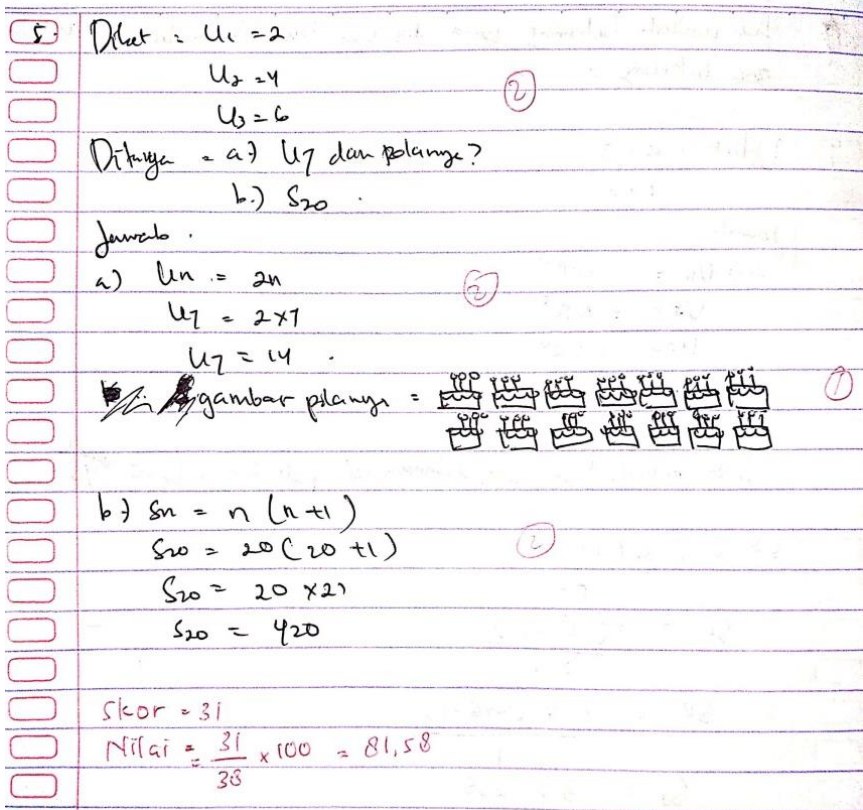 5. Diket : U1 = 2
U2 = 4
U3 = 6
②
Ditanya = a) U7 dan polanya?
b.) S20 .
Jawab .
a) Un = 2n
②
U7 = 2x7
U7 = 14 .
gambar polanya =
①
b) Sn = n (n+1)
S20 = 20 (20 +1)
②
S20 = 20 x 21
S20 = 420
Skor = 31
Nilai = 31/38 x 100 = 81,58